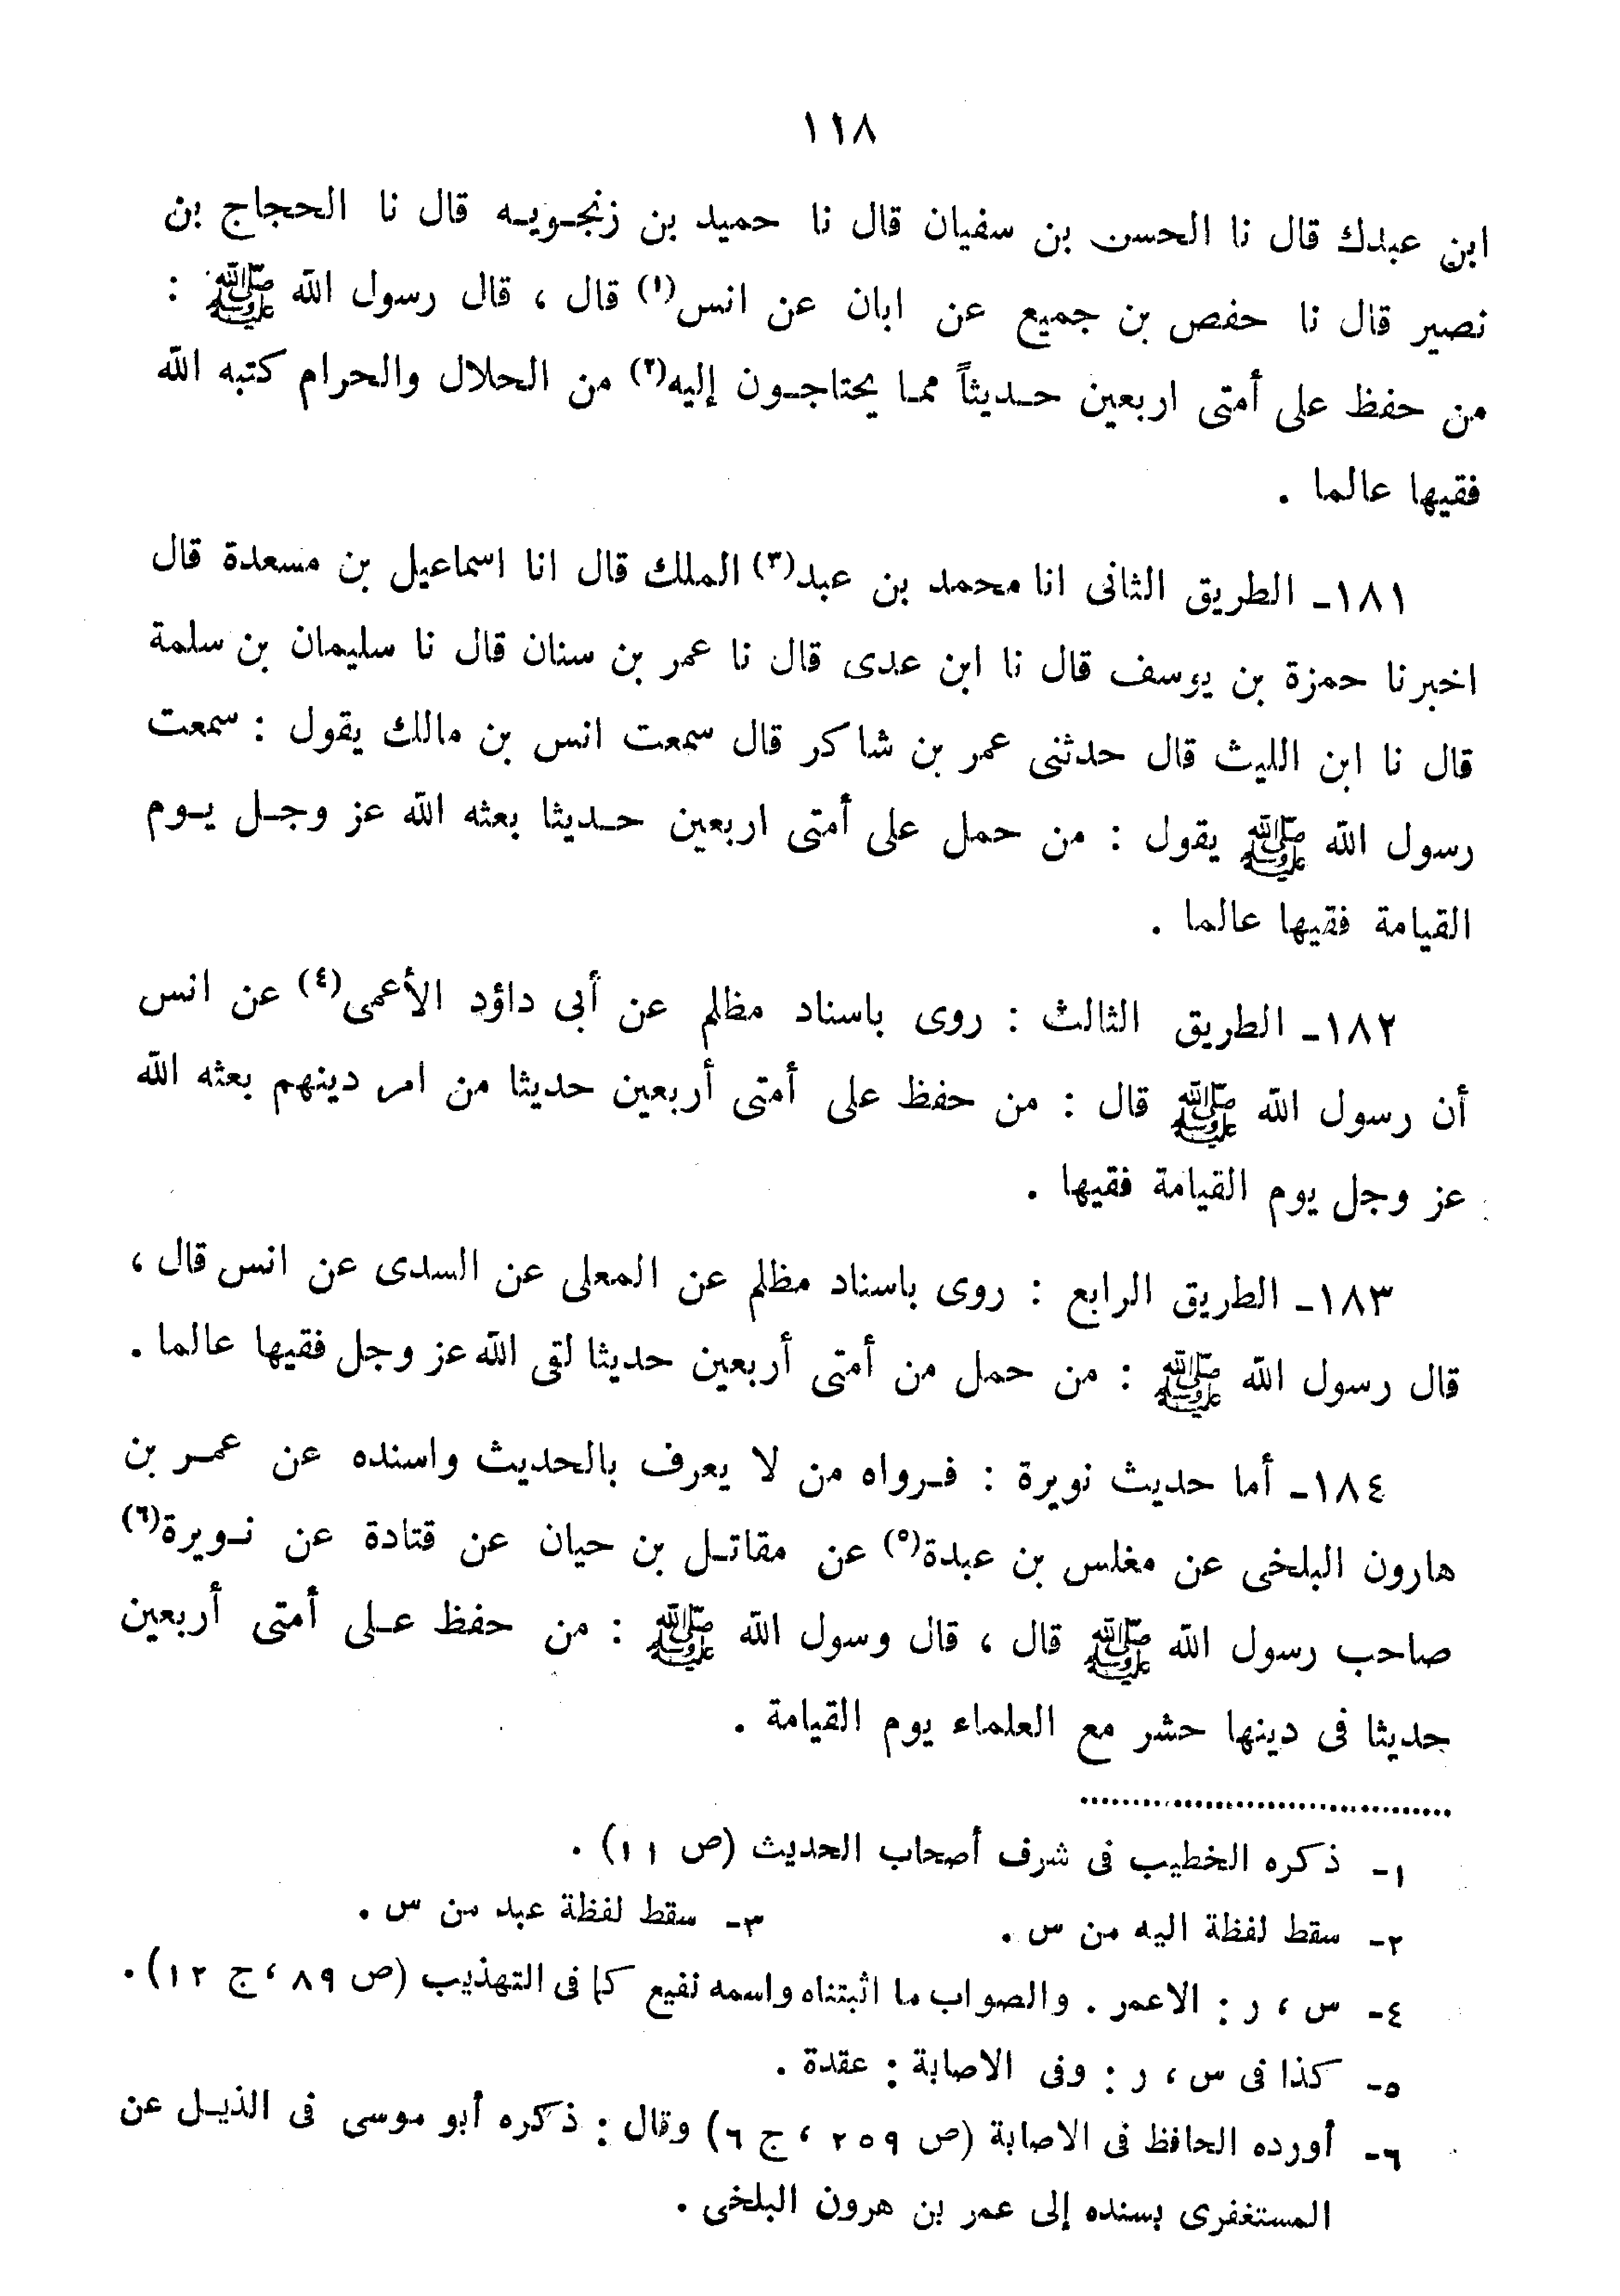 ١١٨
ابن عبدك قال نا الحسن بن سفيان قال نا حميد بن زنجـويـه قال نا الحجاج بن
نصير قال نا حفص بن جميع عن ابان عن انس(١) قال ، قال رسول الله ﷺ :
من حفظ على أمتى اربعين حـديثاً مما يحتاجـون إليه(٢) من الحلال والحرام كتبه الله
فقيها عالما .
١٨١ـ الطريق الثانى انا محمد بن عبد(٣) الملك قال انا اسماعيل بن مسعدة قال
اخبرنا حمزة بن يوسف قال نا ابن عدى قال نا عمر بن سنان قال نا سليمان بن سلمة
قال نا ابن الليث قال حدثنى عمر بن شاكر قال سمعت انس بن مالك يقول : سمعت
رسول الله ﷺ يقول : من حمل على أمتى اربعين حـديثا بعثه الله عز وجـل يـوم
القيامة فقيها عالما .
١٨٢ـ الطريق الثالث : روى باسناد مظلم عن أبى داؤد الأعمى(٤) عن انس
أن رسول الله ﷺ قال : من حفظ على أمتى أربعين حديثا من امر دينهم بعثه الله
عز وجل يوم القيامة فقيها .
١٨٣ـ الطريق الرابع : روى باسناد مظلم عن المعلى عن السدى عن انس قال ،
قال رسول الله ﷺ : من حمل من أمتى أربعين حديثا لقى الله عز وجل فقيها عالما .
١٨٤ـ أما حديث نويرة : فـرواه من لا يعرف بالحديث واسنده عن عمـر بن
هارون البلخى عن مغلس بن عبدة(٥) عن مقاتـل بن حيان عن قتادة عن نـويرة(٦)
صاحب رسول الله ﷺ قال ، قال وسول الله ﷺ : من حفظ عـلى أمتى أربعين
حديثا فى دينها حشر مع العلماء يوم القيامة .
١ـ ذكره الخطيب فى شرف أصحاب الحديث (ص ١١) .
٢ـ سقط لفظة اليه من س . ٣ـ سقط لفظة عبد من س .
٤ـ س ، ر : الاعمر . والصواب ما اثبتناه واسمه نفيع كما فى التهذيب (ص ٨٩ ، ج ١٢) .
٥ـ كذا فى س ، ر : وفى الاصابة : عقدة .
٦ـ أورده الحافظ فى الاصابة (ص ٢٥٩ ، ج ٦) وقال : ذكره أبو موسى فى الذيـل عن
المستغفرى بسنده إلى عمر بن هرون البلخى .